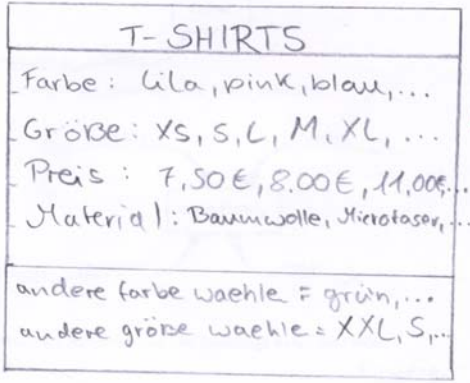 T-SHIRTS
Farbe: lila, pink, blau, ...
Größe: XS, S, L, M, XL, ...
Preis: 7,50€, 8.00€, 11,00€, ...
Material: Baumwolle, Microfaser, ...
andere farbe waehle = grün, ...
andere größe waehle = XXL, S, ...